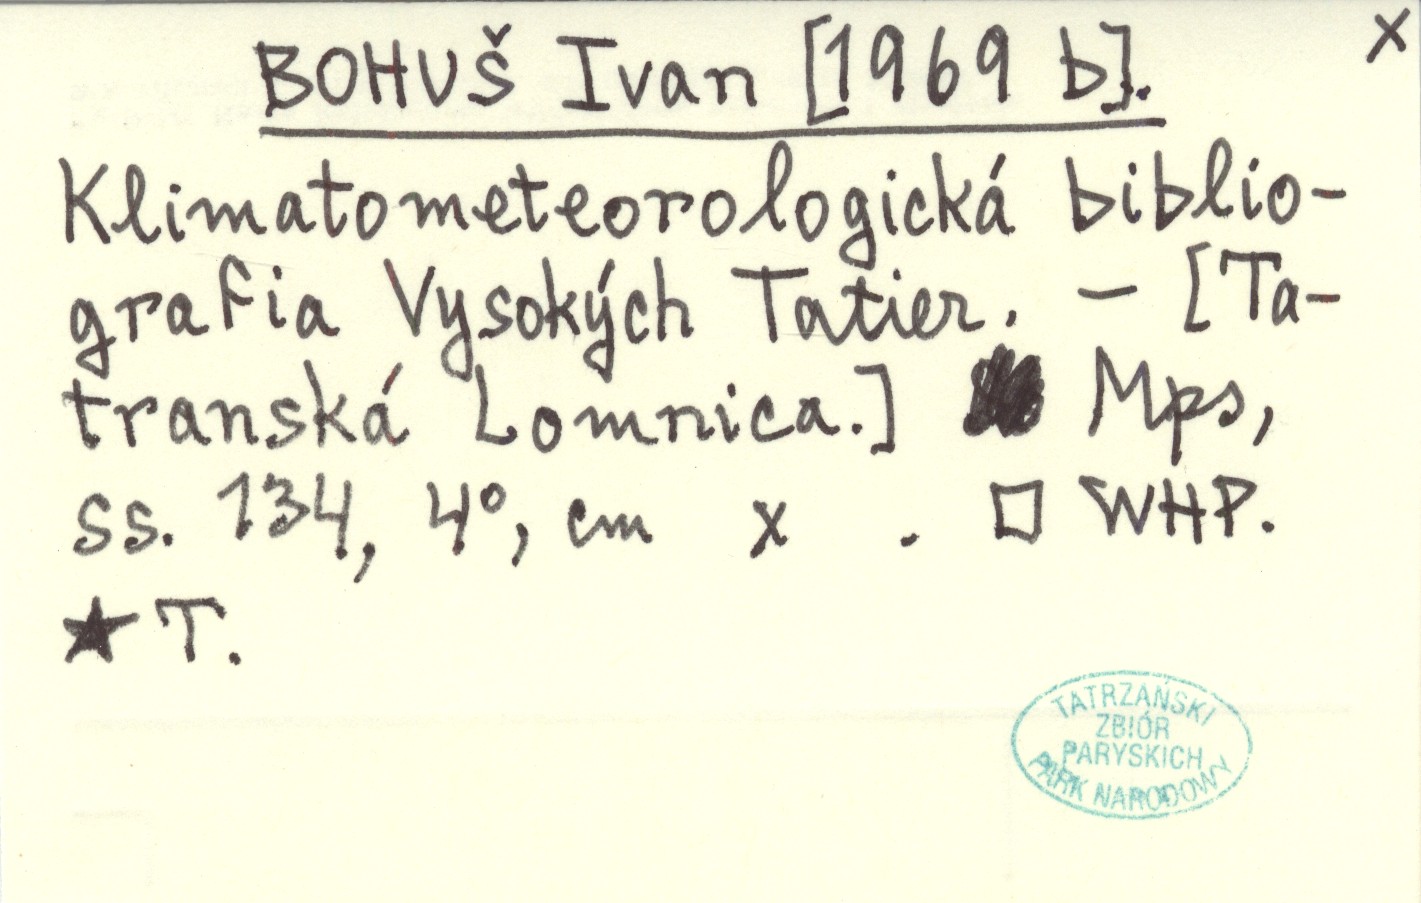 x
BOHUŠ Ivan [1969 b].
Klimatometeorologická biblio-
grafia Vysokých Tatier. – [Ta-
transká Lomnica.] Mps,
ss. 134, 4°, cm x . □ WHP.
★ T.
TATRZAŃSKI
ZBIÓR
PARYSKICH
PARK NARODOWY